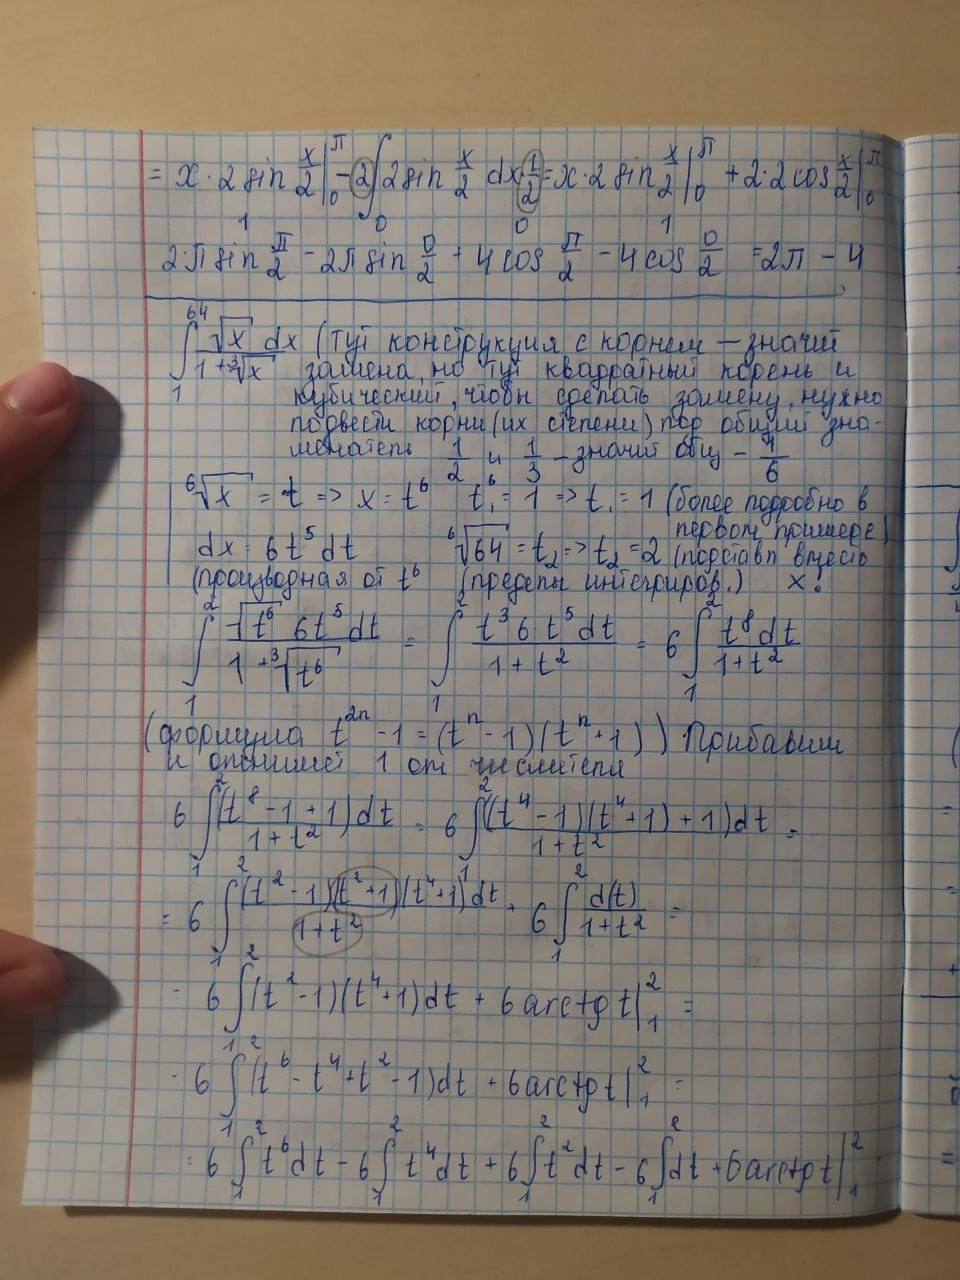 = x · 2 sin x/2 |₀^π − 2 ∫₀ 2 sin x/2 dx · 1/2 = x · 2 sin x/2 |₀^π + 2·2 cos x/2 |₀^π
2·π sin π/2 − 2π sin 0/2 + 4 cos π/2 − 4 cos 0/2 = 2π − 4
∫₁^64 √x dx / (1 + ³√x) (тут конструкция с корнем – значит
замена, но тут квадратный корень и
кубический, чтобы сделать замену, нужно
подвести корни (их степени) под общий зна-
менатель 1/2 и 1/3 – значит общ – 1/6
⁶√x = t => x = t⁶ t₁⁶ = 1 => t₁ = 1 (более подробно в
первом примере)
dx = 6t⁵ dt ⁶√64 = t₂ => t₂ = 2 (подставл вместо
(производная от t⁶ (пределы интегриров.) x!
∫₁² √t⁶ 6t⁵ dt / (1 + ³√t⁶) = ∫₁² t³ 6 t⁵ dt / (1 + t²) = 6 ∫₁² t⁸ dt / (1 + t²)
(формула t²ⁿ − 1 = (tⁿ − 1)(tⁿ + 1)) Прибавим
и отнимем 1 от числителя
6 ∫₁² (t⁸ − 1 + 1) dt / (1 + t²) = 6 ∫₁² (t⁴ − 1)(t⁴ + 1) + 1) dt / (1 + t²) =
= 6 ∫₁² (t² − 1)(t² + 1)(t⁴ + 1) dt / (1 + t²) + 6 ∫₁² d(t) / (1 + t²) =
= 6 ∫₁² (t² − 1)(t⁴ + 1) dt + 6 arctg t |₁² =
= 6 ∫₁² (t⁶ − t⁴ + t² − 1) dt + 6 arctg t |₁² =
= 6 ∫₁² t⁶ dt − 6 ∫₁² t⁴ dt + 6 ∫₁² t² dt − 6 ∫₁² dt + 6 arctg t |₁²